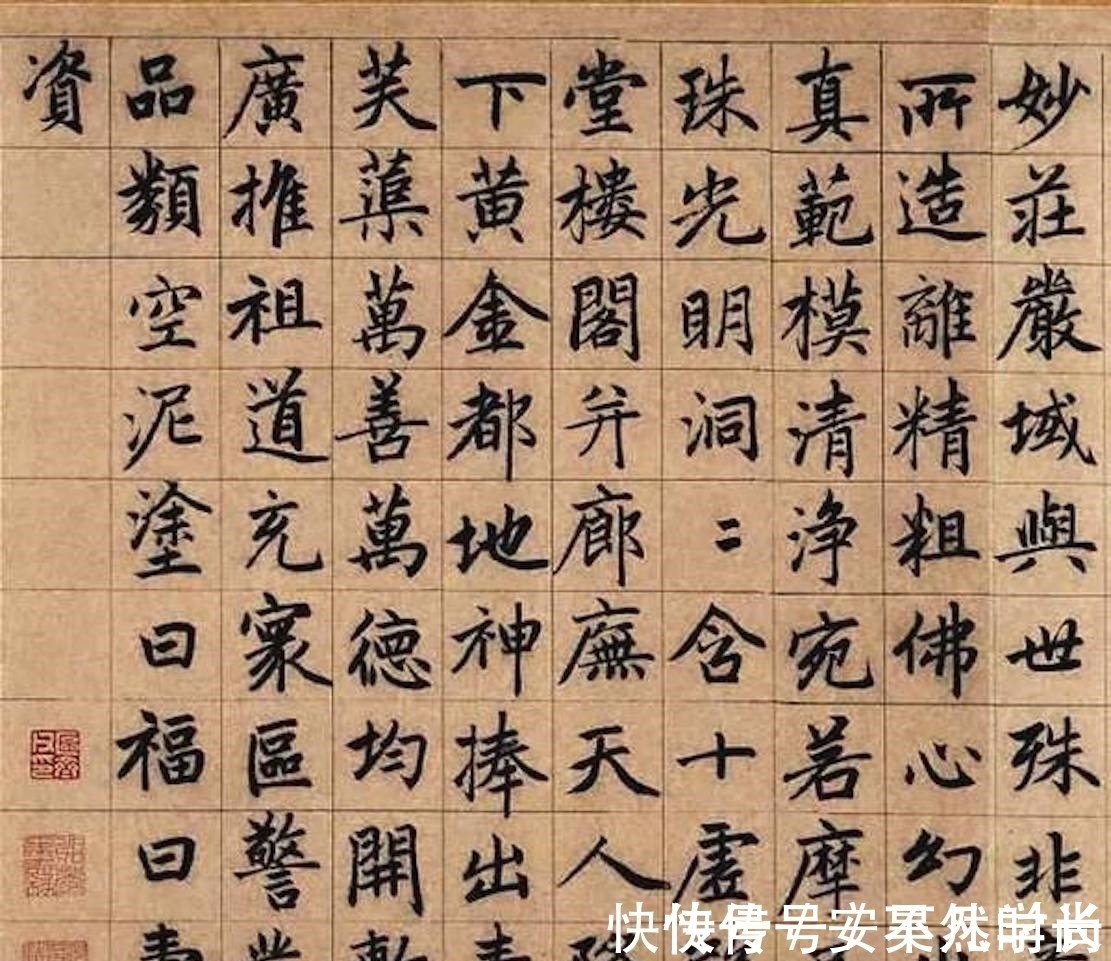 妙莊嚴域與世殊非
所造離精粗佛心幻
真範模清淨宛若摩
珠光明洞二含十虛
堂樓閣并廊廡天人
下黃金都地神捧出
芙蕖萬善萬德均開
廣推祖道充寰區警
品類空泥塗曰福曰
資